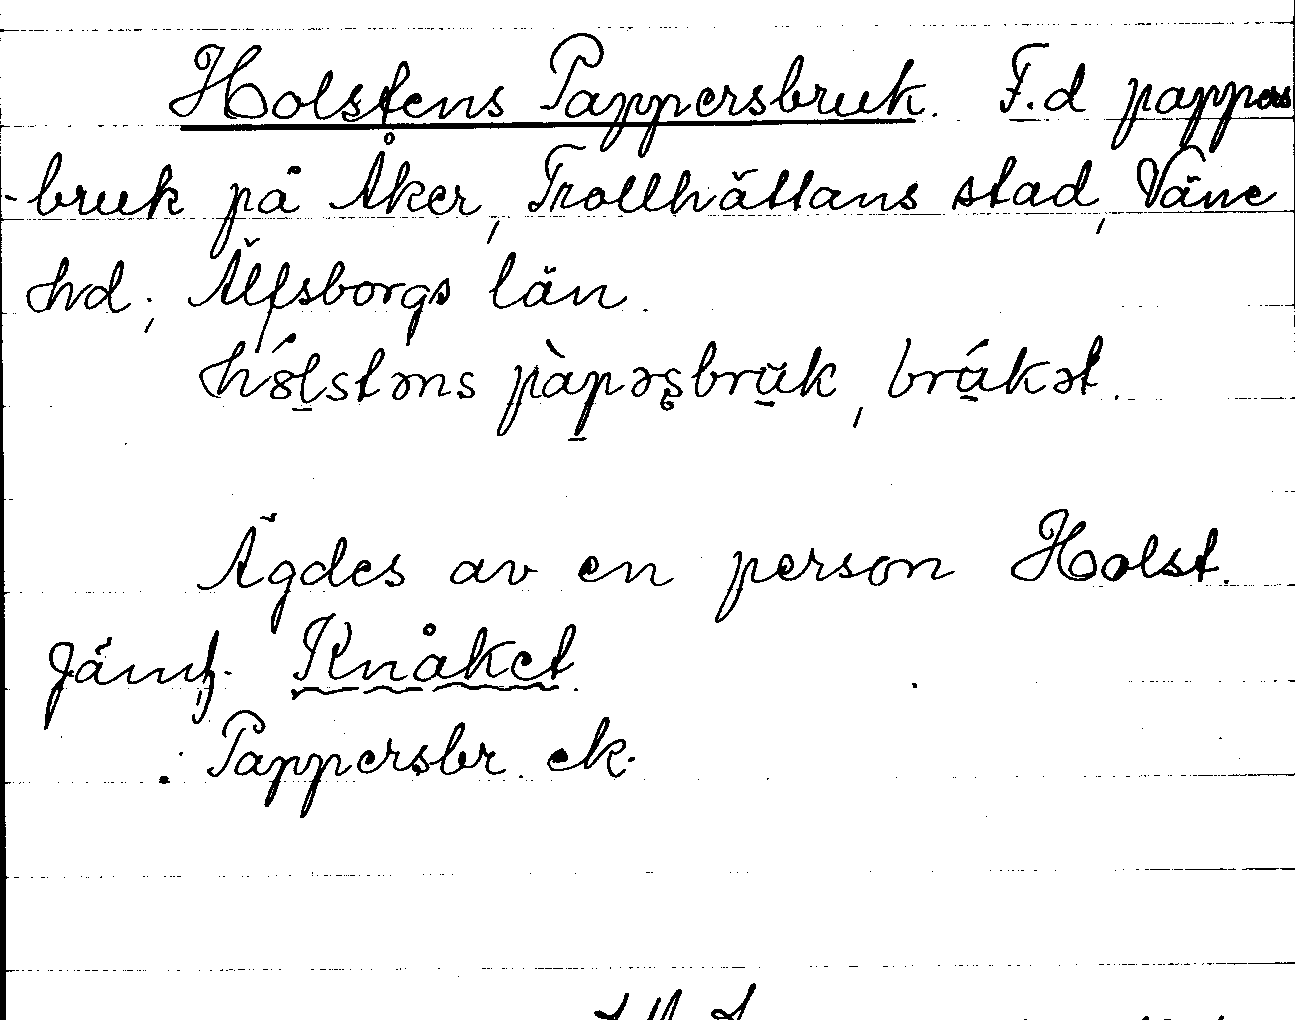 Holstens Pappersbruk. F.d pappers
-bruk på Åker, Trollhättans stad, Väne
hd, Älfsborgs län.
hól̲stəns pàp̲əʂbru̲k, brú̲kət.
Ägdes av en person Holst.
Jämf. Knåket.
: Pappersbr. ek.